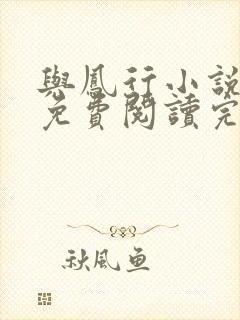 與鳳行小說
免費閱讀完
秋風魚